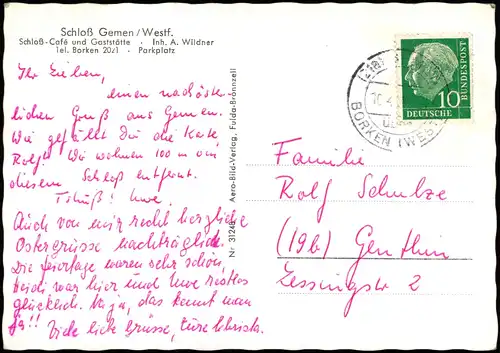 Schloß Gemen/Westf.
Schloß-Café und Gaststätte • Inh. A. Wildner
Tel. Borken 2021 • Parkplatz
Ihr Lieben,
einen nachöster-
lichen Gruß aus Gemen.
Wie gefällt Dir die Karte,
Rolf? Wir wohnen 100 m von
diesem Schloß entfernt.
Tschüß! Uwe.
Auch von mir recht herzliche
Ostergrüsse nachträglich.
Die Feiertage waren sehr schön,
Heidi war hier und Uwe restlos
glücklich. Na ja, das kennt man
ja!! Viele liebe Grüsse, Eure Christa.
Nr. 31248 Aero-Bild-Verlag, Fulda-Bronnzell
BORKEN (WESTF
10
DEUTSCHE
BUNDESPOST
Familie
Rolf Schulze
(19b) Genthin
Lessingstr 2